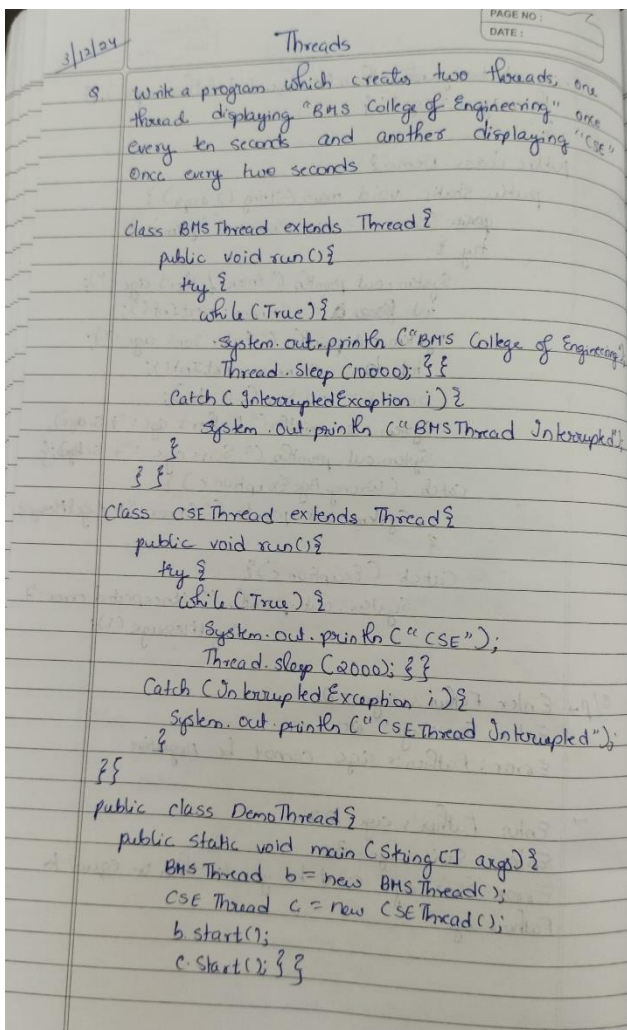 PAGE NO :
DATE :
3/12/24
Threads
Q. Write a program which creates two threads, one
thread displaying "BMS College of Engineering" once
every ten seconds and another displaying "CSE"
Once every two seconds
class BMSThread extends Thread{
public void run(){
try {
while (True){
System.out.println ("BMS College of Engineering");
Thread.sleep (10000); }}
Catch ( InterruptedException i){
System.out.println ("BMSThread Interrupted");
}
}}
Class CSEThread extends Thread{
public void run(){
try {
while (True) {
System.out.println ("CSE");
Thread.sleep (2000); }}
Catch (InterruptedException i){
System.out.println ("CSEThread Interrupted");
}
}}
public class DemoThread{
public static void main (String [] args){
BMSThread b = new BMSThread();
CSEThread c = new CSEThread();
b.start();
c.start(); }}